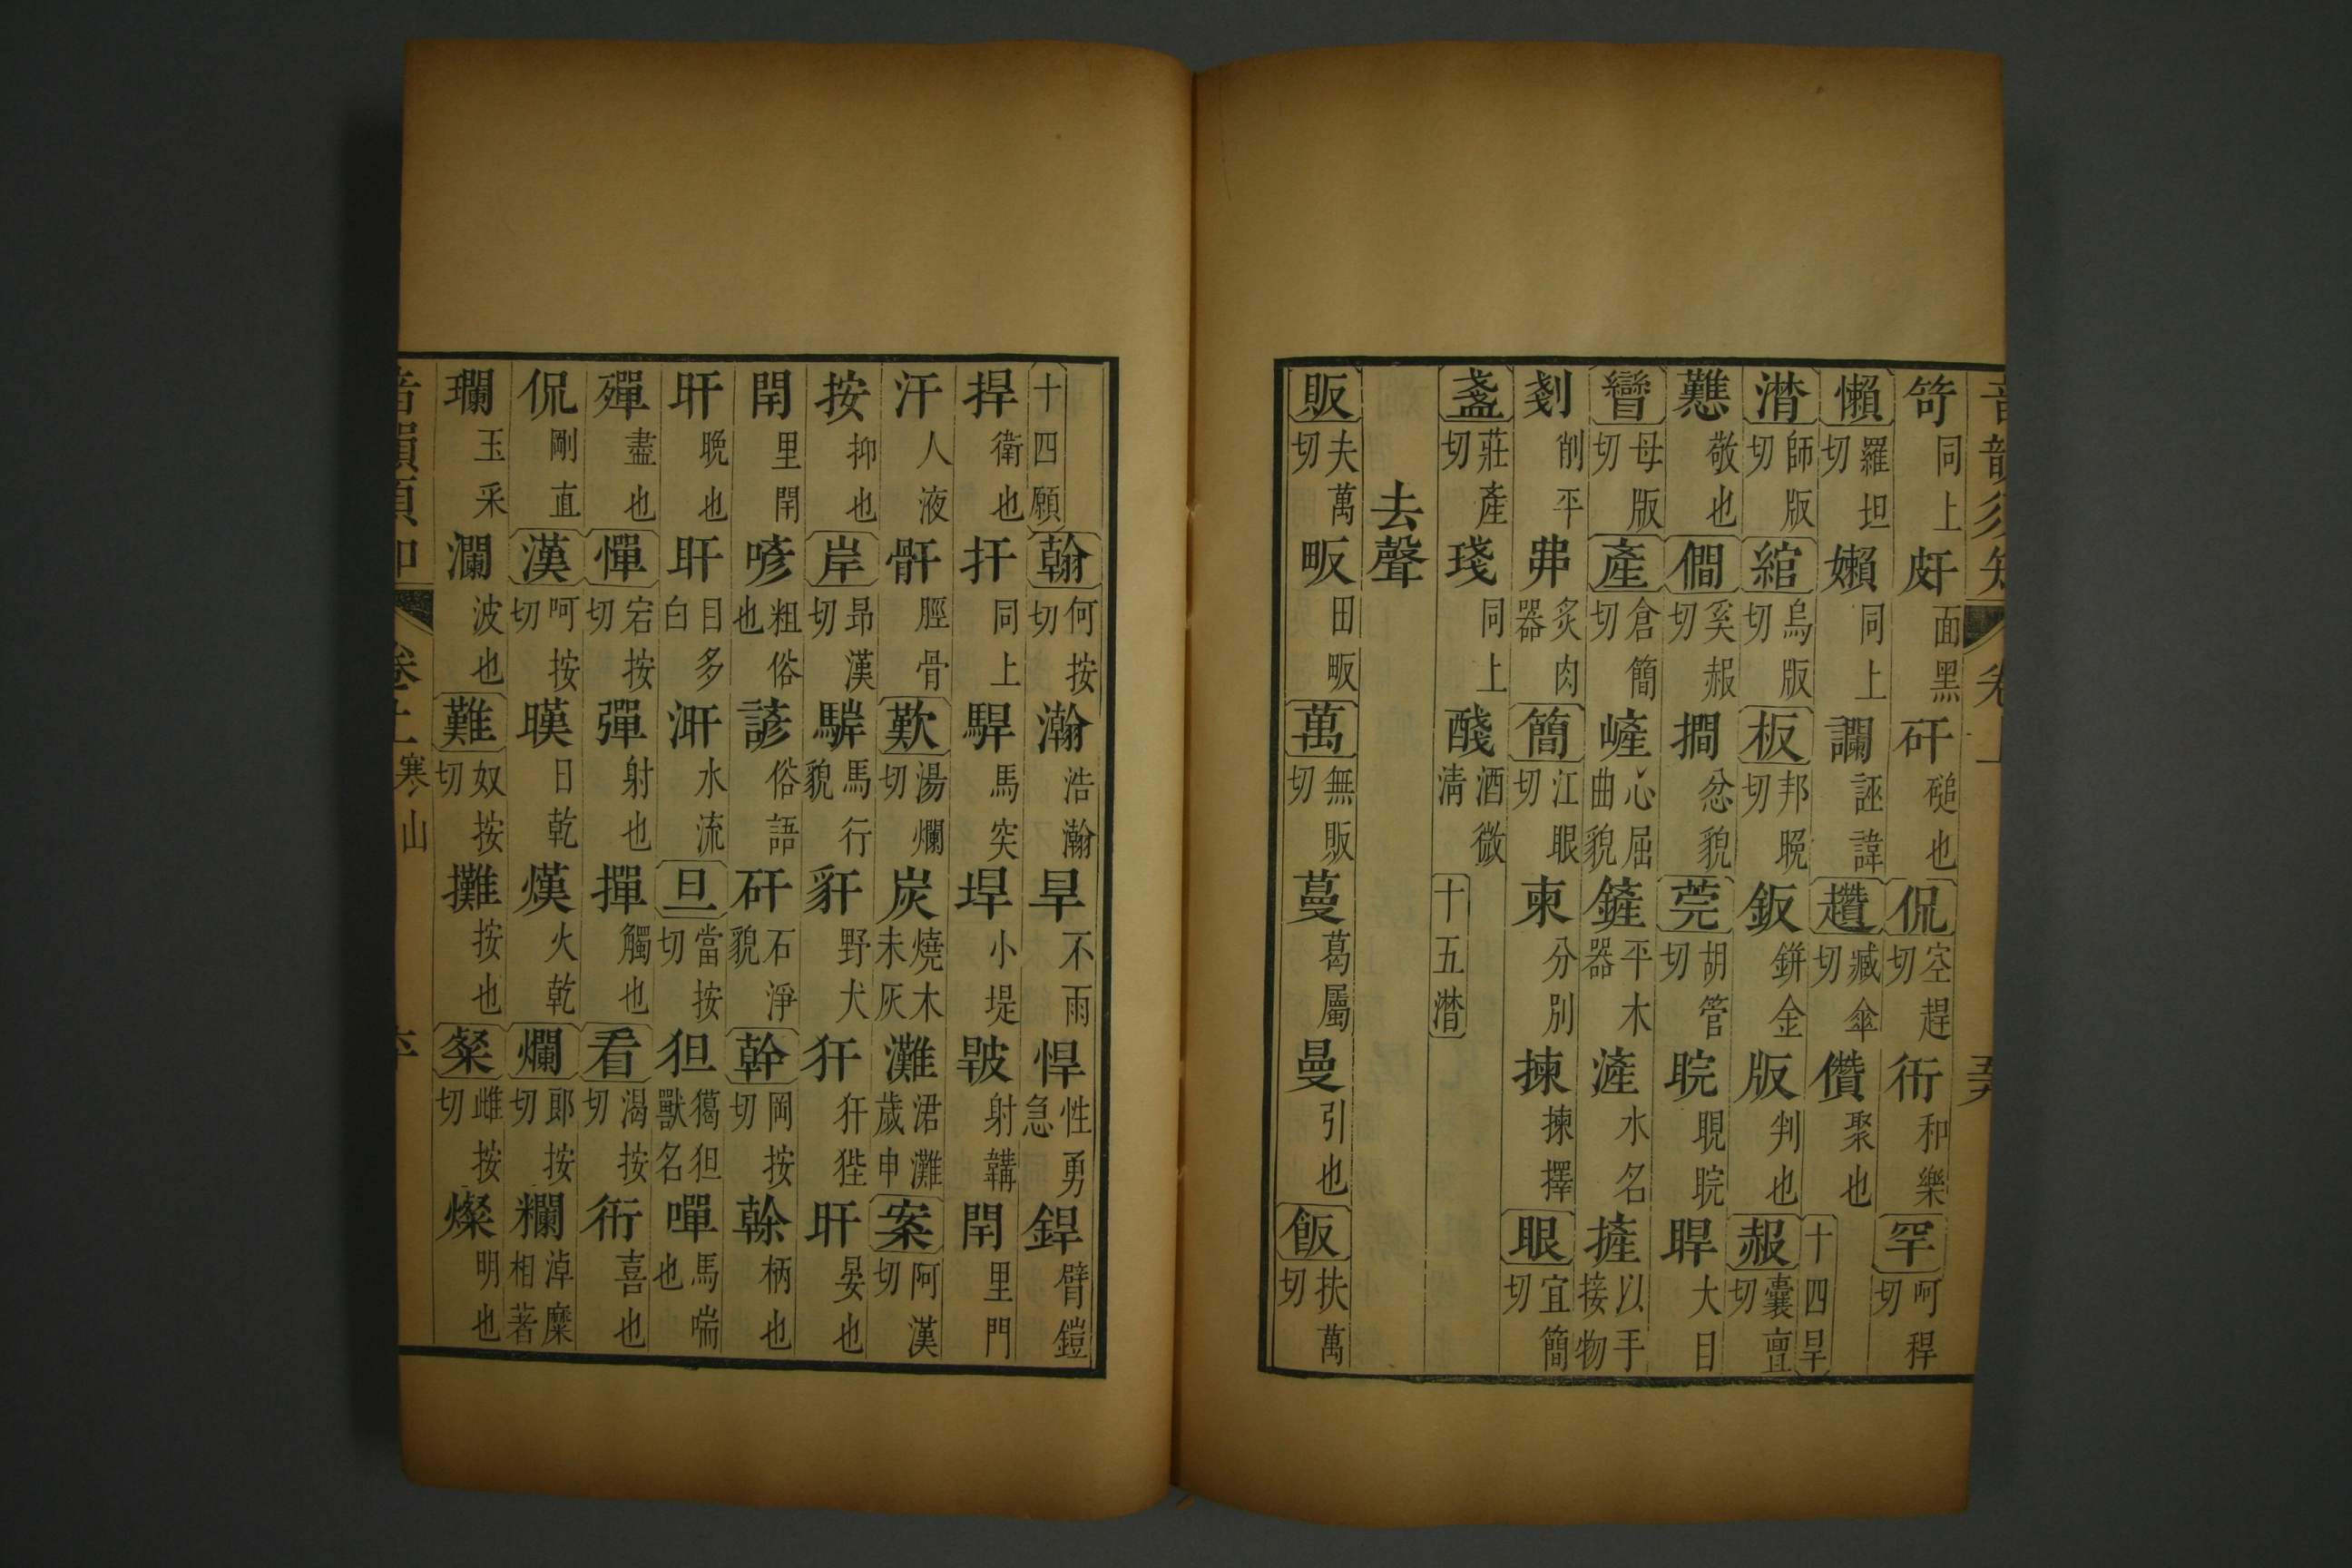 音韻須知 卷上
笴同上皯面黑矸磓也侃空趕切衎和樂罕呵稈切
懶羅坦切嬾同上讕誣諱趲臧傘切儹聚也十四旱
潸師版切綰烏版切板邦晚切鈑鉼金版判也赧囊亶切
戁敬也僩奚赧切撊忿貌莞胡管切睆睍睆睅大目
矕母版切產倉簡切嵼心屈曲貌鏟平木器滻水名摌以手接物
剗削平丳炙肉器簡江眼切柬分別揀揀擇眼宜簡切
盞莊產切琖同上醆酒微清十五潸
去聲
販夫萬切畈田畈萬無販切蔓葛屬曼引也飯扶萬切
十四願翰何按切瀚浩瀚旱不雨悍性勇急銲臂鎧
捍衛也扞同上駻馬突垾小堤皾射韝閈里門
汗人液骭脛骨歎湯爛切炭燒木未灰灘涒灘歲申案阿漢切
按抑也岸昂漢切騂馬行貌豻野犬犴犴狴旰晏也
閈里閈喭粗俗也諺俗語矸石淨貌幹岡按切榦柄也
旰晚也盰目多白汧水流旦當按切狚獦狚獸名嘽馬喘也
殫盡也憚宕按切彈射也撣觸也看渴按切衎喜也
侃剛直漢呵按切暵日乾熯火乾爛郎按切糷淖糜相著
瓓玉采瀾波也難奴按切攤按也粲雌按切燦明也
音韻須知 卷上 寒山